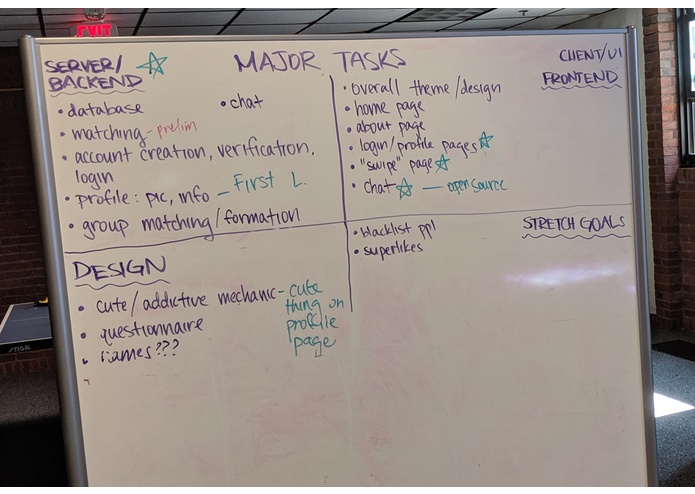 EXIT
MAJOR TASKS
SERVER/
BACKEND
• database
• chat
• matching - prelim
• account creation, verification,
login
• profile: pic, info - First L.
• group matching/formation
CLIENT/UI
FRONTEND
• overall theme/design
• home page
• about page
• login/profile pages
• "swipe" page
• chat — open source
DESIGN
• cute/addictive mechanic - cute
thing on
profile
page
• questionnaire
• games???
STRETCH GOALS
• blacklist ppl
• superlikes
STIGA